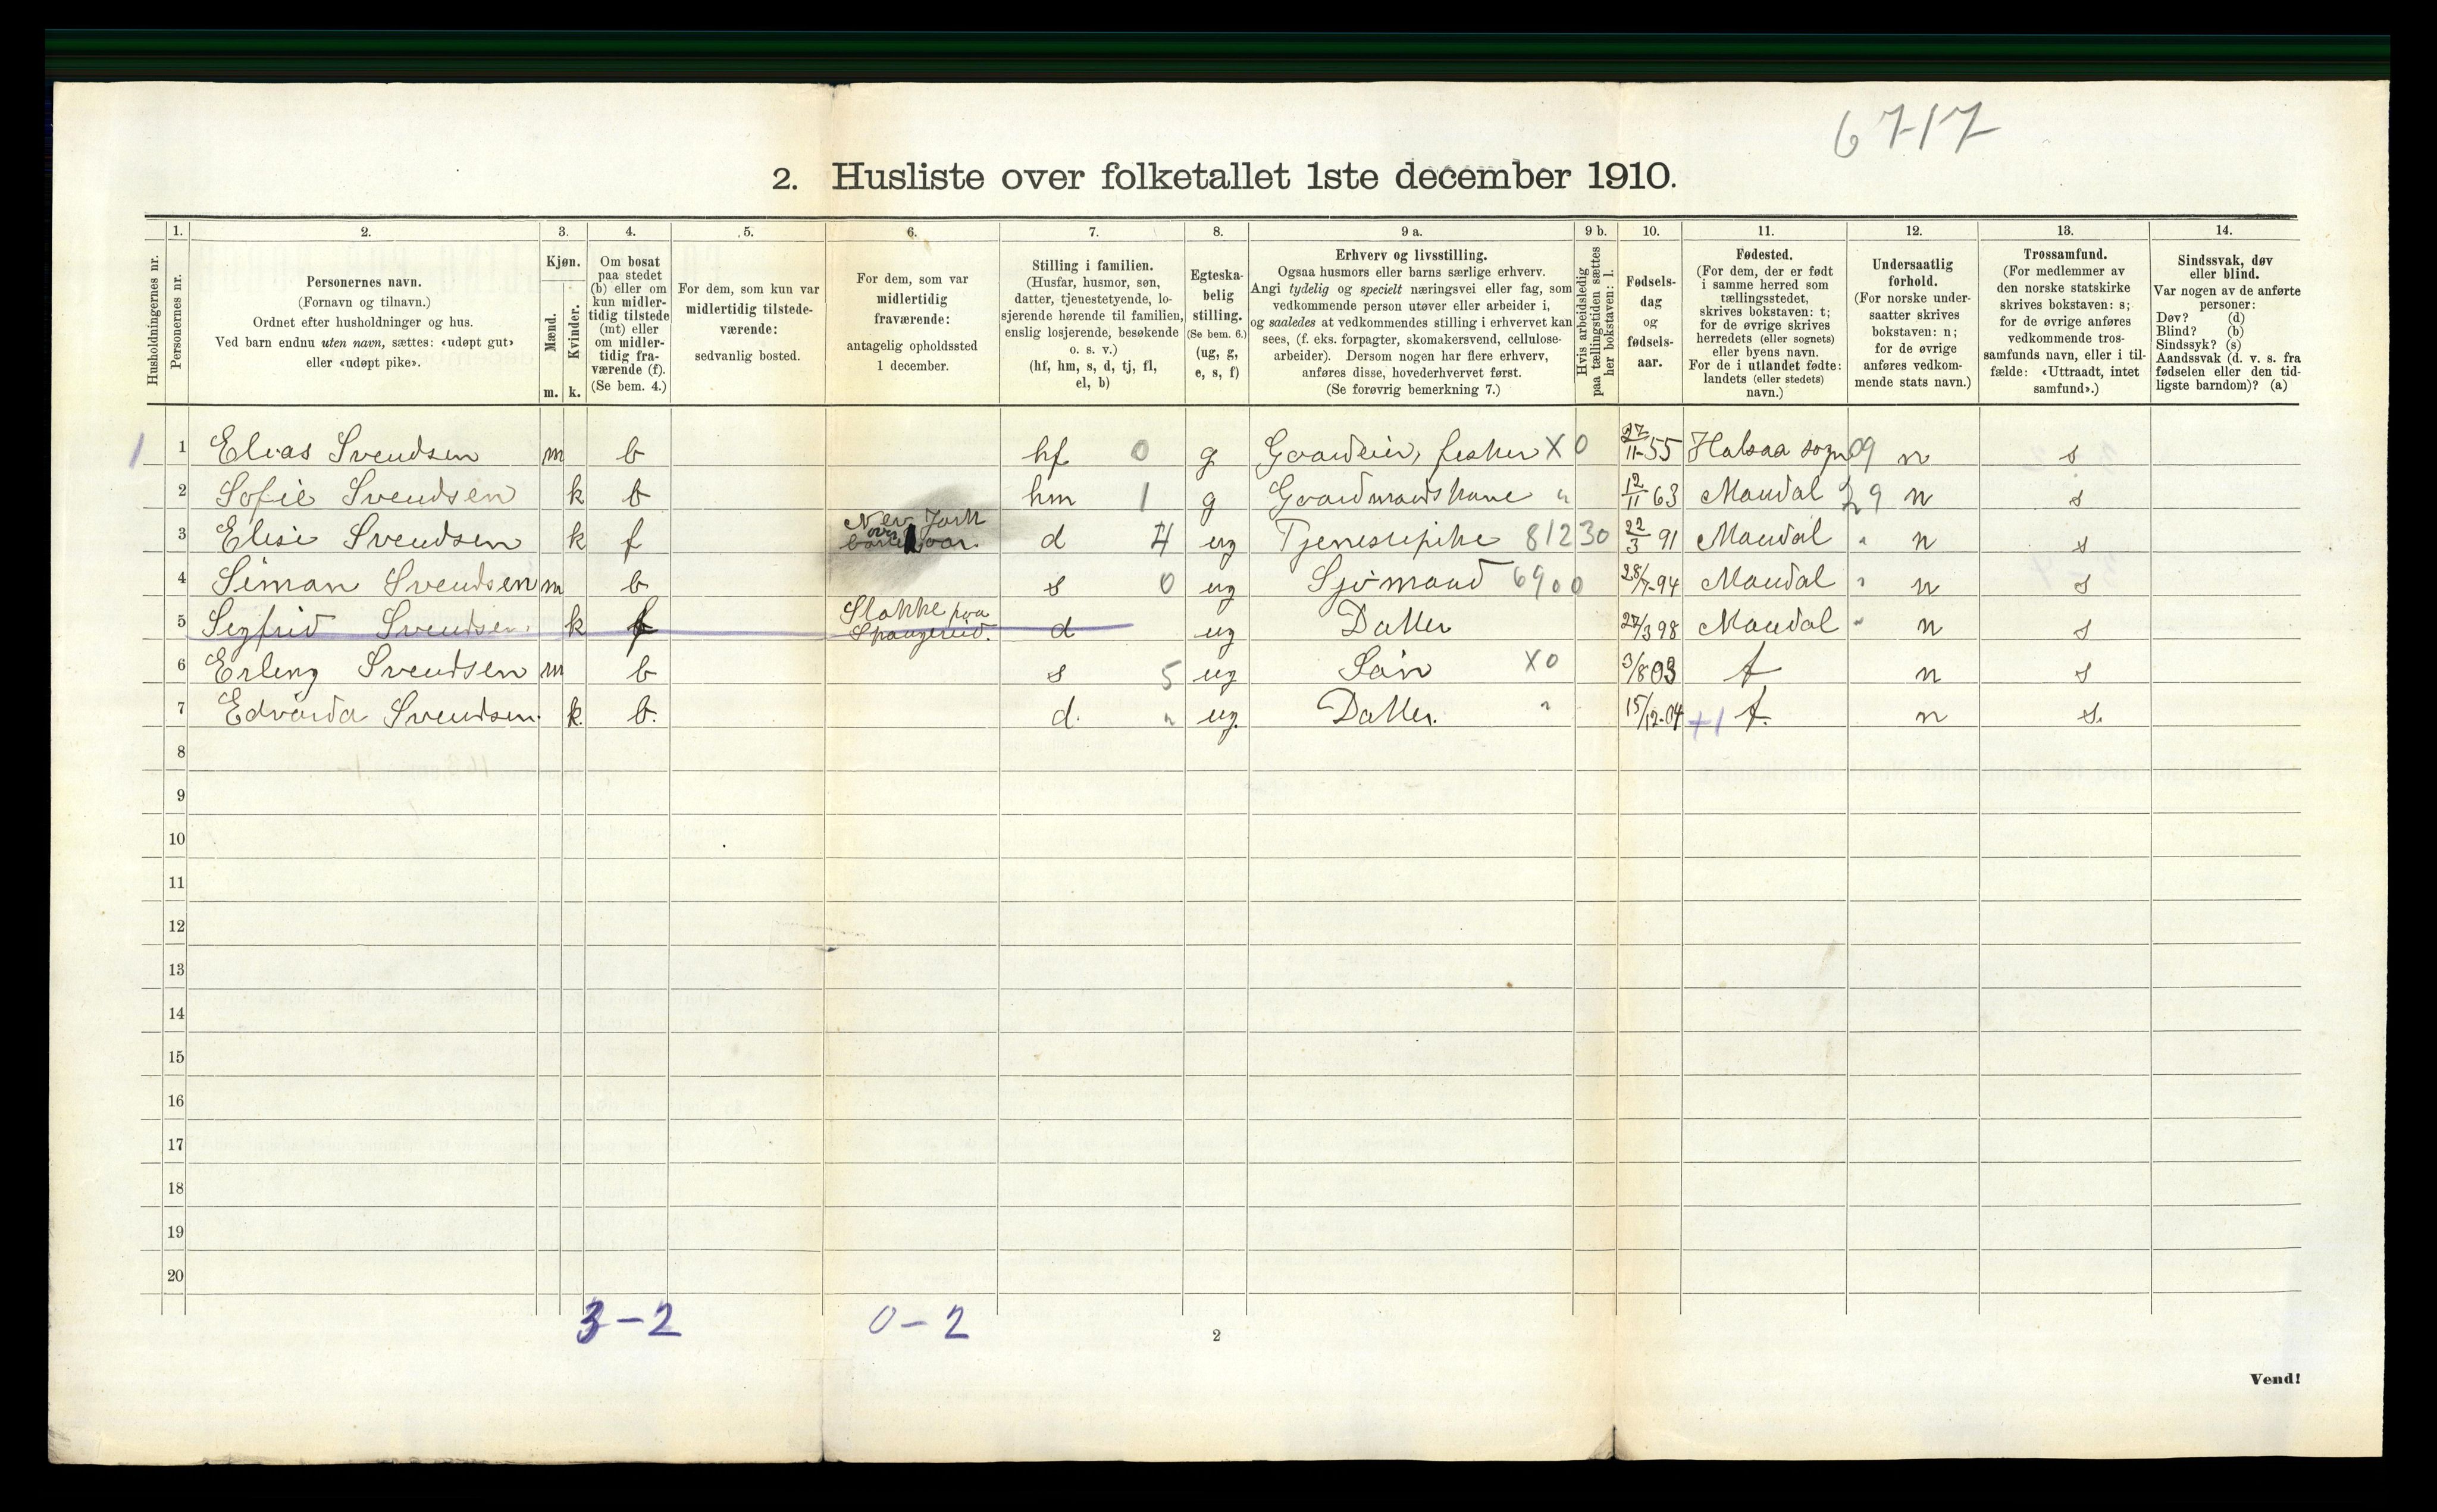 6717
2. Husliste over folketallet 1ste december 1910.
Husholdningernes nr.
1.
Personernes nr.
2.
Personernes navn.
(Fornavn og tilnavn.)
Ordnet efter husholdninger og hus.
Ved barn endnu uten navn, sættes: «udøpt gut»
eller «udøpt pike».
3.
Kjøn.
Mænd.
Kvinder.
m. k.
4.
Om bosat
paa stedet
(b) eller om
kun midler-
tidig tilstede
(mt) eller
om midler-
tidig fra-
værende (f).
(Se bem. 4.)
5.
For dem, som kun var
midlertidig tilstede-
værende:
sedvanlig bosted.
6.
For dem, som var
midlertidig
fraværende:
antagelig opholdssted
1 december.
7.
Stilling i familien.
(Husfar, husmor, søn,
datter, tjenestetyende, lo-
sjerende hørende til familien,
enslig losjerende, besøkende
o. s. v.)
(hf, hm, s, d, tj, fl,
el, b)
8.
Egteska-
belig
stilling.
(Se bem. 6.)
(ug, g,
e, s, f)
9 a.
Erhverv og livsstilling.
Ogsaa husmors eller barns særlige erhverv.
Angi tydelig og specielt næringsvei eller fag, som
vedkommende person utøver eller arbeider i,
og saaledes at vedkommendes stilling i erhvervet kan
sees, (f. eks. forpagter, skomakersvend, cellulose-
arbeider). Dersom nogen har flere erhverv,
anføres disse, hovederhvervet først.
(Se forøvrig bemerkning 7.)
9 b.
Hvis arbeidsledig
paa tællingstiden sættes
her bokstaven: l.
10.
Fødsels-
dag
og
fødsels-
aar.
11.
Fødested.
(For dem, der er født
i samme herred som
tællingsstedet,
skrives bokstaven: t;
for de øvrige skrives
herredets (eller sognets)
eller byens navn.
For de i utlandet fødte:
landets (eller stedets)
navn.)
12.
Undersaatlig
forhold.
(For norske under-
saatter skrives
bokstaven: n;
for de øvrige
anføres vedkom-
mende stats navn.)
13.
Trossamfund.
(For medlemmer av
den norske statskirke
skrives bokstaven: s;
for de øvrige anføres
vedkommende tros-
samfunds navn, eller i til-
fælde: «Uttraadt, intet
samfund».)
14.
Sindssvak, døv
eller blind.
Var nogen av de anførte
personer:
Døv? (d)
Blind? (b)
Sindssyk? (s)
Aandssvak (d. v. s. fra
fødselen eller den tid-
ligste barndom)? (a)
1 1 Elias Svendsen m b hf 0 g Gaardeier, fisker X0 27/11-55 Halsaa sogn 09 n s
2 Sofie Svendsen k b hm 1 g Gaardmandskone " 12/11 63 Mandal 29 n s
3 Elise Svendsen k f New York d 4 ug Tjenestepike 81230 22/3 91 Mandal " n s
4 Siman Svendsen m b s 0 ug Sjømand 6900 28/7-94 Mandal " n s
5 Sigfrid Svendsen k f Stokke paa Spangereid. d ug Datter 27/3 98 Mandal " n s
6 Erling Svendsen m b s 5 ug Søn X0 3/8 03 t n s
7 Edvarda Svendsen. k. b. d. " ug. Datter. " 15/12-04 +1 t. n s.
8
9
10
11
12
13
14
15
16
17
18
19
20
3-2 0-2
2
Vend!